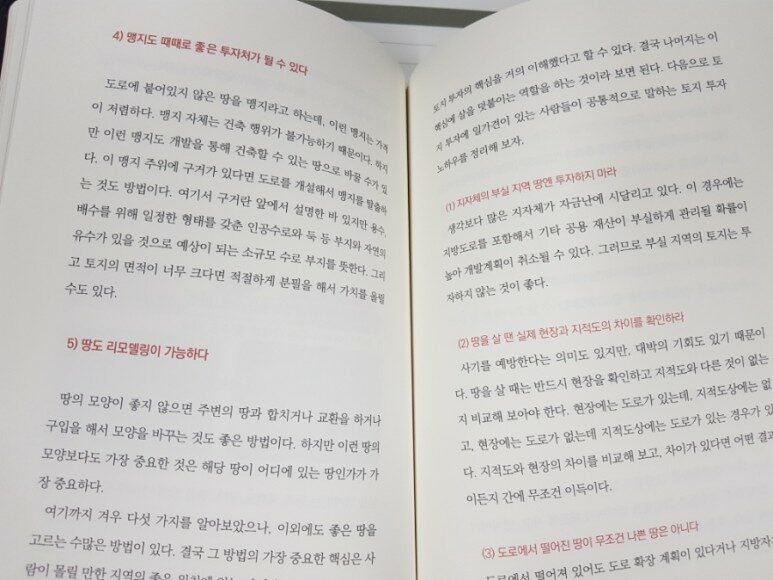 4) 맹지도 때때로 좋은 투자처가 될 수 있다
도로에 붙어있지 않은 땅을 맹지라고 하는데, 이런 맹지는 가격
이 저렴하다. 맹지 자체는 건축 행위가 불가능하기 때문이다. 하지
만 이런 맹지도 개발을 통해 건축할 수 있는 땅으로 바꿀 수가 있
다. 이 맹지 주위에 구거가 있다면 도로를 개설해서 맹지를 탈출하
는 것도 방법이다. 여기서 구거란 앞에서 설명한 바 있지만 용수,
배수를 위해 일정한 형태를 갖춘 인공수로와 둑 등 부지와 자연의
유수가 있을 것으로 예상이 되는 소규모 수로 부지를 뜻한다. 그리
고 토지의 면적이 너무 크다면 적절하게 분필을 해서 가치를 올릴
수도 있다.
5) 땅도 리모델링이 가능하다
땅의 모양이 좋지 않으면 주변의 땅과 합치거나 교환을 하거나
구입을 해서 모양을 바꾸는 것도 좋은 방법이다. 하지만 이런 땅의
모양보다도 가장 중요한 것은 해당 땅이 어디에 있는 땅인가가 가
장 중요하다.
여기까지 겨우 다섯 가지를 알아보았으나, 이외에도 좋은 땅을
고르는 수많은 방법이 있다. 결국 그 방법의 가장 중요한 핵심은 사
람이 몰릴 만한 지역의 좋은
토지 투자의 핵심을 거의 이해했다고 할 수 있다. 결국 나머지는 이
핵심에 살을 덧붙이는 역할을 하는 것이라 보면 된다. 다음으로 토
지 투자에 일가견이 있는 사람들이 공통적으로 말하는 토지 투자
노하우를 정리해 보자.
(1) 지자체의 부실 지역 땅엔 투자하지 마라
생각보다 많은 지자체가 자금난에 시달리고 있다. 이 경우에는
지방도로를 포함해서 기타 공용 재산이 부실하게 관리될 확률이
높아 개발계획이 취소될 수 있다. 그러므로 부실 지역의 토지는 투
자하지 않는 것이 좋다.
(2) 땅을 살 땐 실제 현장과 지적도의 차이를 확인하라
사기를 예방한다는 의미도 있지만, 대박의 기회도 있기 때문이
다. 땅을 살 때는 반드시 현장을 확인하고 지적도와 다른 것이 없는
지 비교해 보아야 한다. 현장에는 도로가 있는데, 지적도상에는 없
고, 현장에는 도로가 없는데 지적도상에는 도로가 있는 경우가 있
다. 지적도와 현장의 차이를 비교해 보고, 차이가 있다면 어떤 결과
이든지 간에 무조건 이득이다.
(3) 도로에서 떨어진 땅이 무조건 나쁜 땅은 아니다
도로에서 떨어져 있어도 도로 확장 계획이 있다거나 지방자